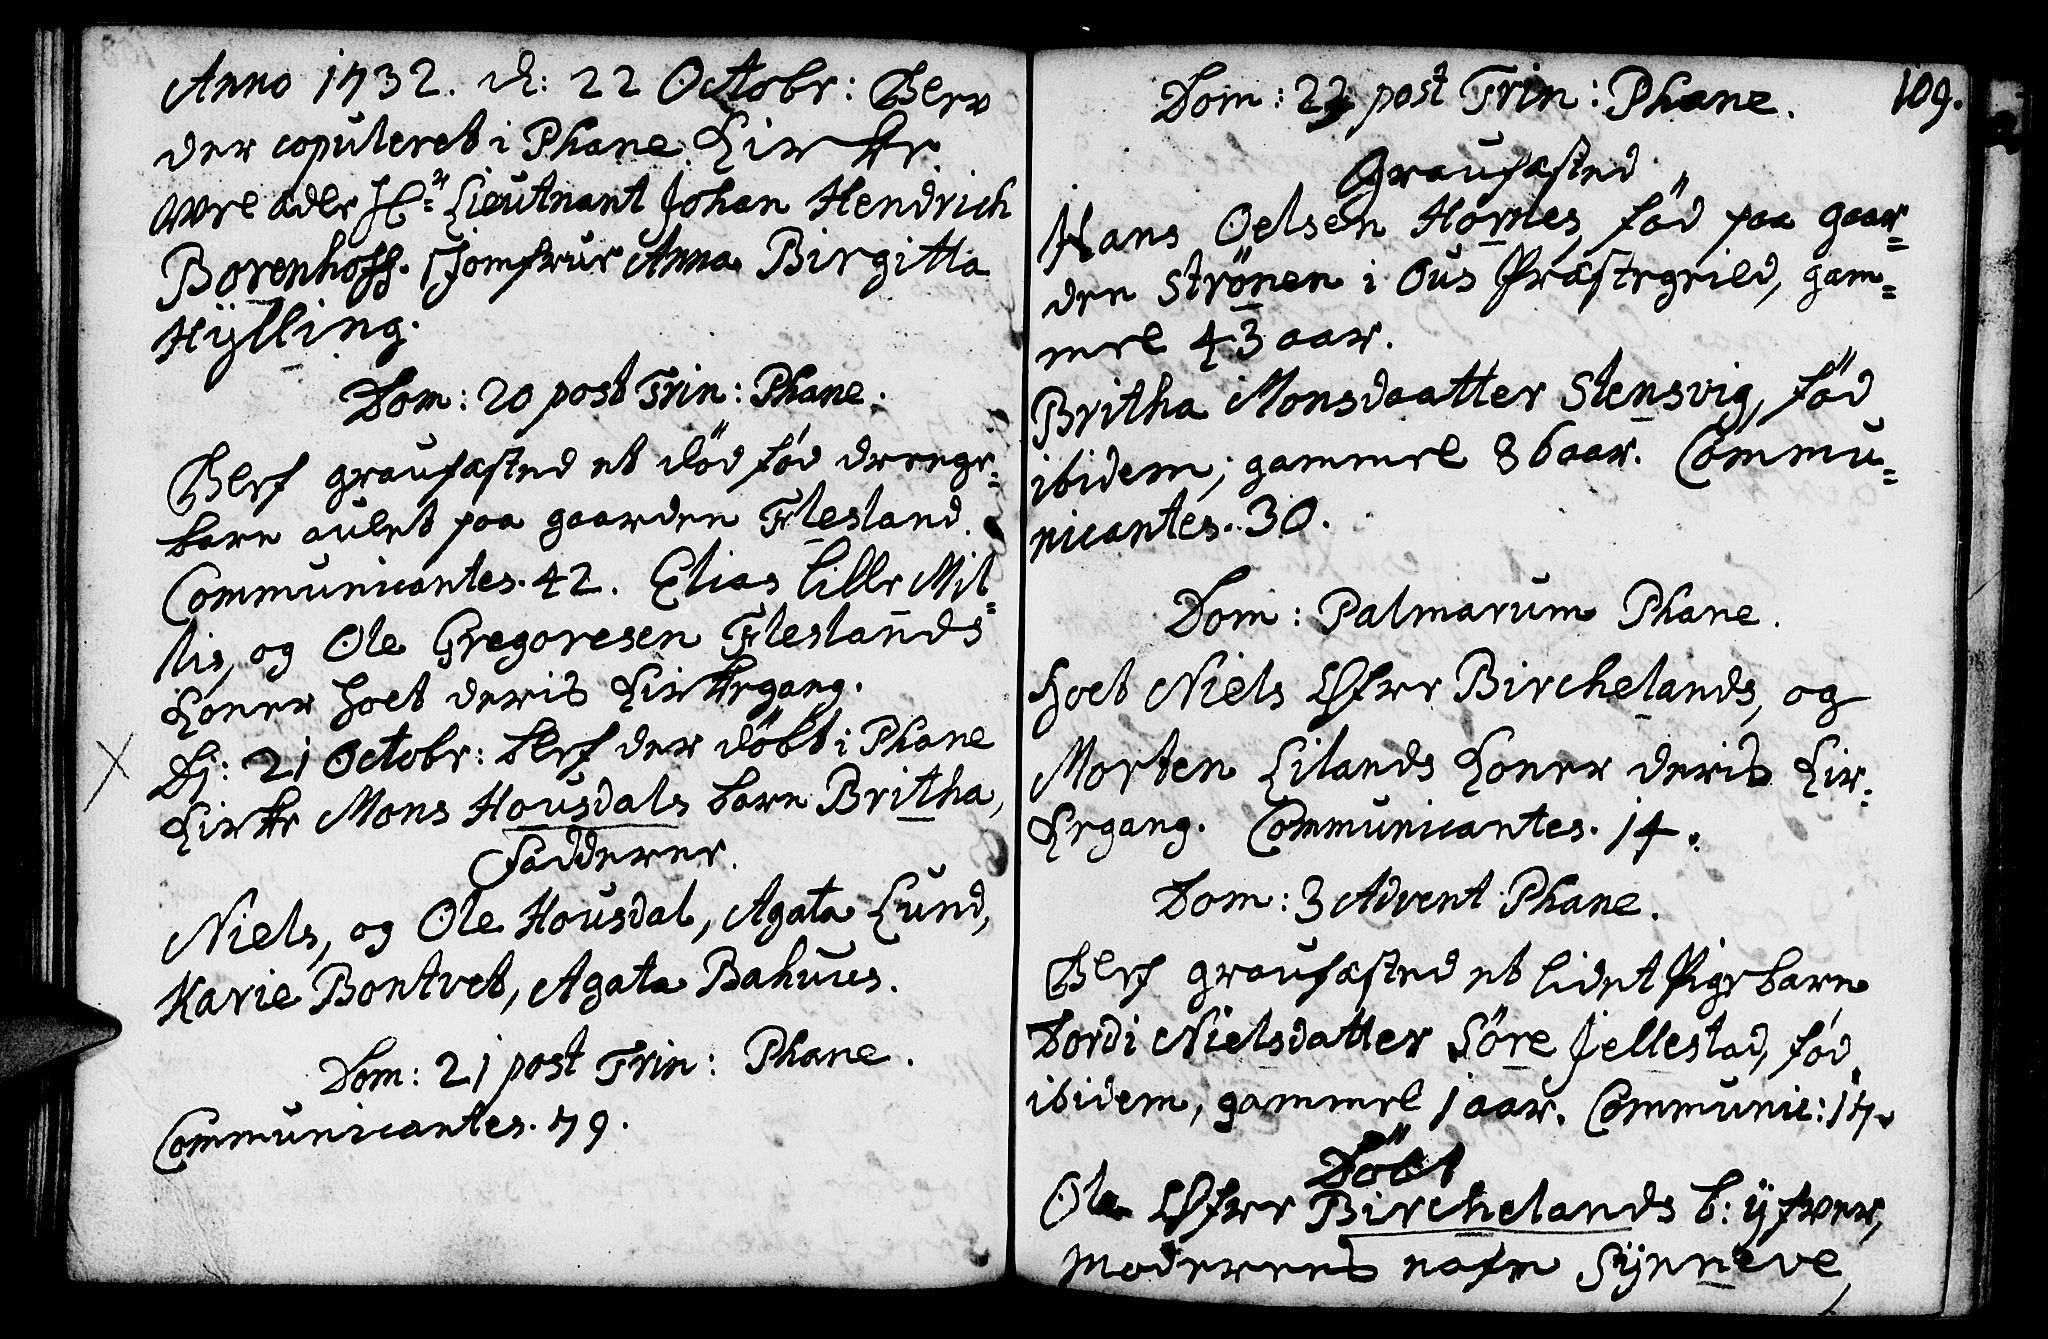 Anno 1732. d: 22 Octobr: Blev
der copuleret i Phane Kirke
Wel ædle Hr: Lieutnant Johan Hendrich
Borenhoff. Jomfrue Anna Birgitta
Hÿlling.
Dom: 20 post Trin: Phane.
Blef graufæsted et död fød drenge=
barn aulet paa gaarden Flesland.
Communicantes. 42. Elias lille Mil=
lis, og Ole Gregoresen Fleslands
Koner holt deris Kirkegang.
Dj: 21 Octobr: blef der döbt i Phane
Kirke Mons Housdals barn Britha,
Fadderer.
Niels, og Ole Housdal, Agata Lund,
Karie Bontvet, Agata Bahuus.
Dom: 21 post Trin: Phane.
Communicantes. 79.
109.
Dom: 23 post Trin: Phane.
Graufæsted
Hans Oelsen Hornes, föd paa gaar=
den Strönen i Ous Præstegield, gam=
mel 43 aar.
Britha Monsdaatter Stensvig, föd
ibidem; gammel 86 aar. Commu=
nicantes. 30.
Dom: Palmarum Phane.
Holt Niels Øfre Birchelands, og
Morten Lilands Koner deris Kir=
kegang. Communicantes. 14.
Dom: 3 Advent Phane.
Blef graufæsted et lidet Pige barn
Dordi Nielsdatter Söre Jellestad, fød
ibidem, gammel 1 aar. Communic: 17.
Döbt
Ole Øfre Birchelands b: ÿfver,
moderens nafn Sÿnneve,